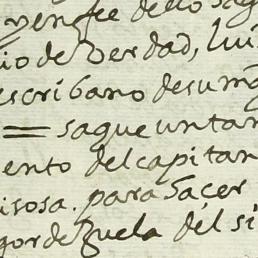 y en fee dello
io de verdad, lui
escribano de su mag
= saque un tan
ento del capitan
sosa. para Sacer
gor de Zuela del si